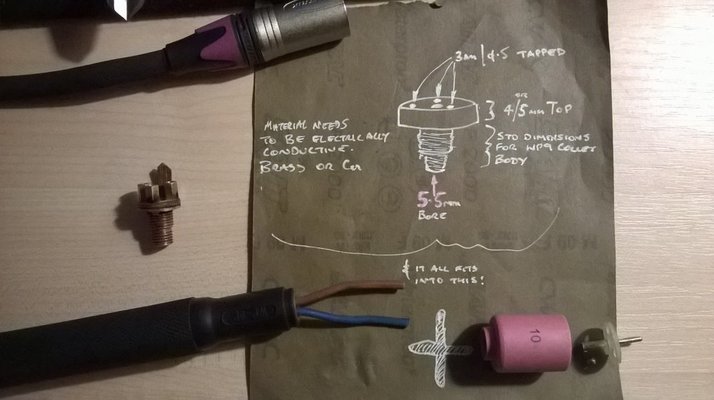 3mm / 0.5 TAPPED
OR
4/5mm TOP
MATERIAL NEEDS
TO BE ELECTRICALLY
CONDUCTIVE.
BRASS OR Cu
STD DIMENSIONS
FOR WP9 COLLET
BODY
5.5mm
BORE
IT ALL FITS
INTO THIS!
10